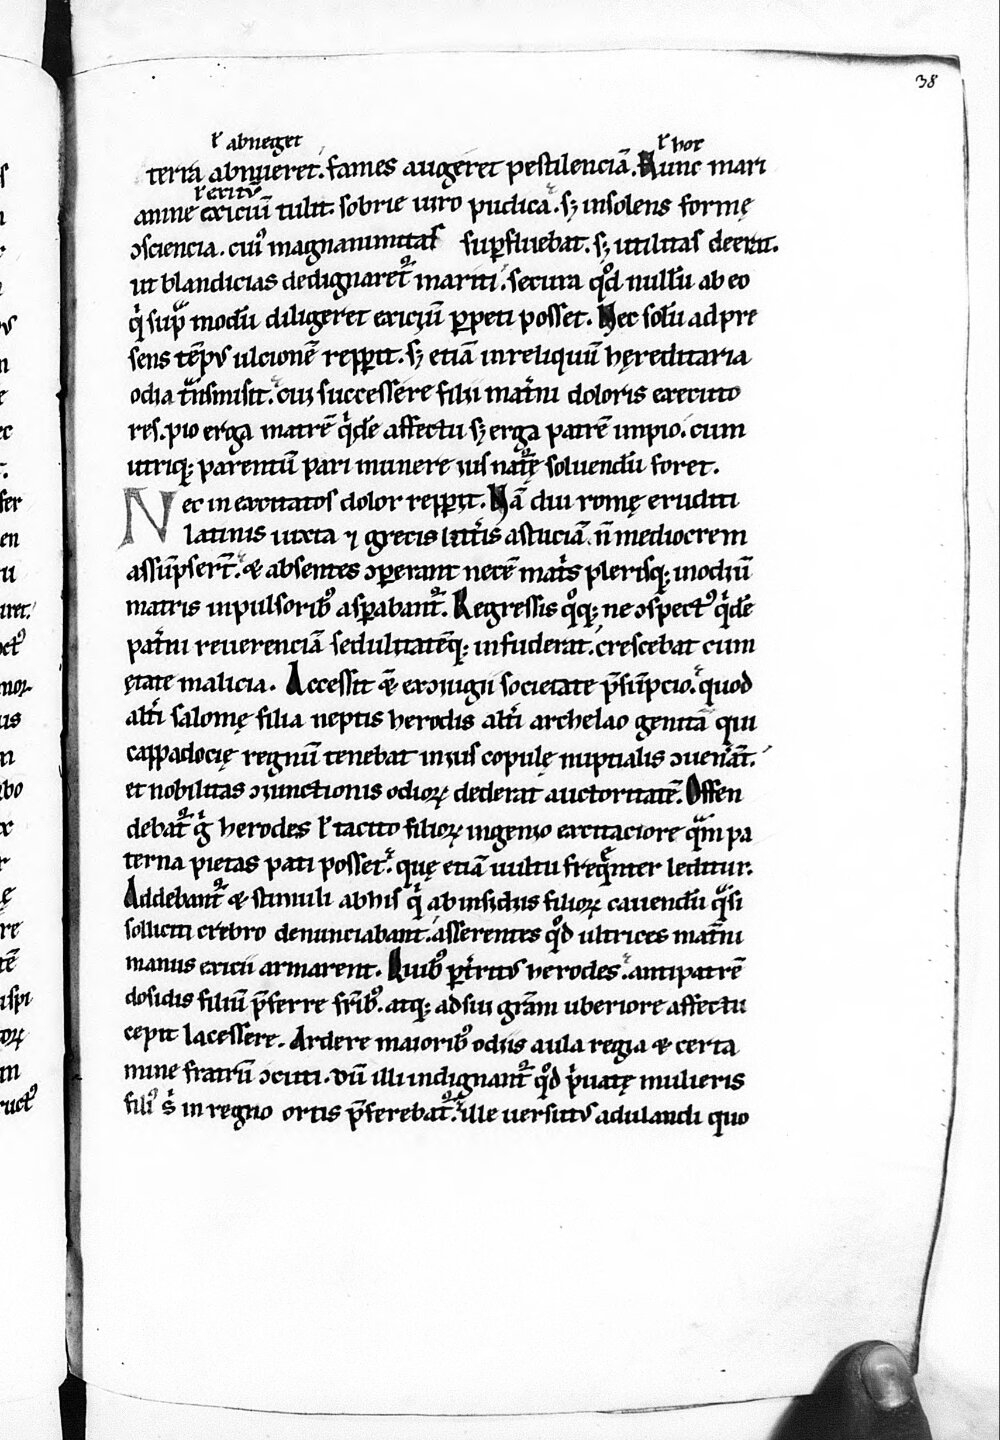 38
ł abneget ł hoc
terra abnueret. fames augeret pestilenciā. Nunc mari
ł exitꝰ
amne exiciū tulit. sobrie uiro pudica. sꝫ insolens formę
ɔsciencia. cuiꝰ magnanimitas suꝑfluebat. sꝫ utilitas deerat.
ut blandicias dedignaret᷑ mariti. secura qđ nullū ab eo
q̇ sup̃ modū diligeret exiciū ꝑpeti posset. Nec solū ad pre
sens tēpꝰ ulcionē repꝑit. sꝫ etiā inreliquū hęreditaria
odia tͣnsmisit. cui successere filii mat̃ni doloris executo
res. pio erga matrē q̇dē affectu sꝫ erga patrē impio. cum
utriqꝫ parentū pari munere ius nat᷑ę soluendū foret.
Nec in excitatos dolor repꝑit. Nā diu romę eruditi
latinis iuxta ⁊ grecis litt̃is astuciā n̄ mediocrem
assūpser̄t. & absentes ɔꝑerant necē mat̃s plerisqꝫ inodiū
matris inpulsoribꝰ asꝑabant᷑. Regressis qͦqꝫ ne ɔspectꝰ q̇dē
pat̃ni reuerenciā sedulitatēqꝫ infuderat. crescebat cum
ętate malicia. Accessit & exɔiugii societate p̄sūpcio. quod
alt̃i salomę filia neptis herodis alt̃i archelao genita qui
cappadocię regnū tenebat inius copulę nuptialis ɔuenˀāt.
et nobilitas ɔiunctionis odioꝝ dederat auctoritatē. Offen
debat᷑ g̊ herodes ł tacito filioꝝ ingenio excitaciore qͣm pa
terna pietas pati posset. quę etiā uultu freq̃nter leditur.
Addebant᷑ & stimuli abhis q̇ ab insidiis filioꝝ cauendū qͣsi
solliciti crebro denunciabant. asserentes qđ ultrices mat̃ni
manus exicii armarent. Quibꝰ ꝑt̃ritꝰ herodes. antipatrē
dosidis filiū p̄ferre fr̃ibꝰ. atqꝫ adsui gr̃am uberiore affectu
cepit lacessere. Ardere maioribꝰ odiis aula regia & certa
mine fratrū ɔcuti. dū illi indignant᷑ qđ ṗuatę mulieris
filiꝰ s̃ in regno ortis p̄ferebat᷑. ille uersutꝰ adulandi quo